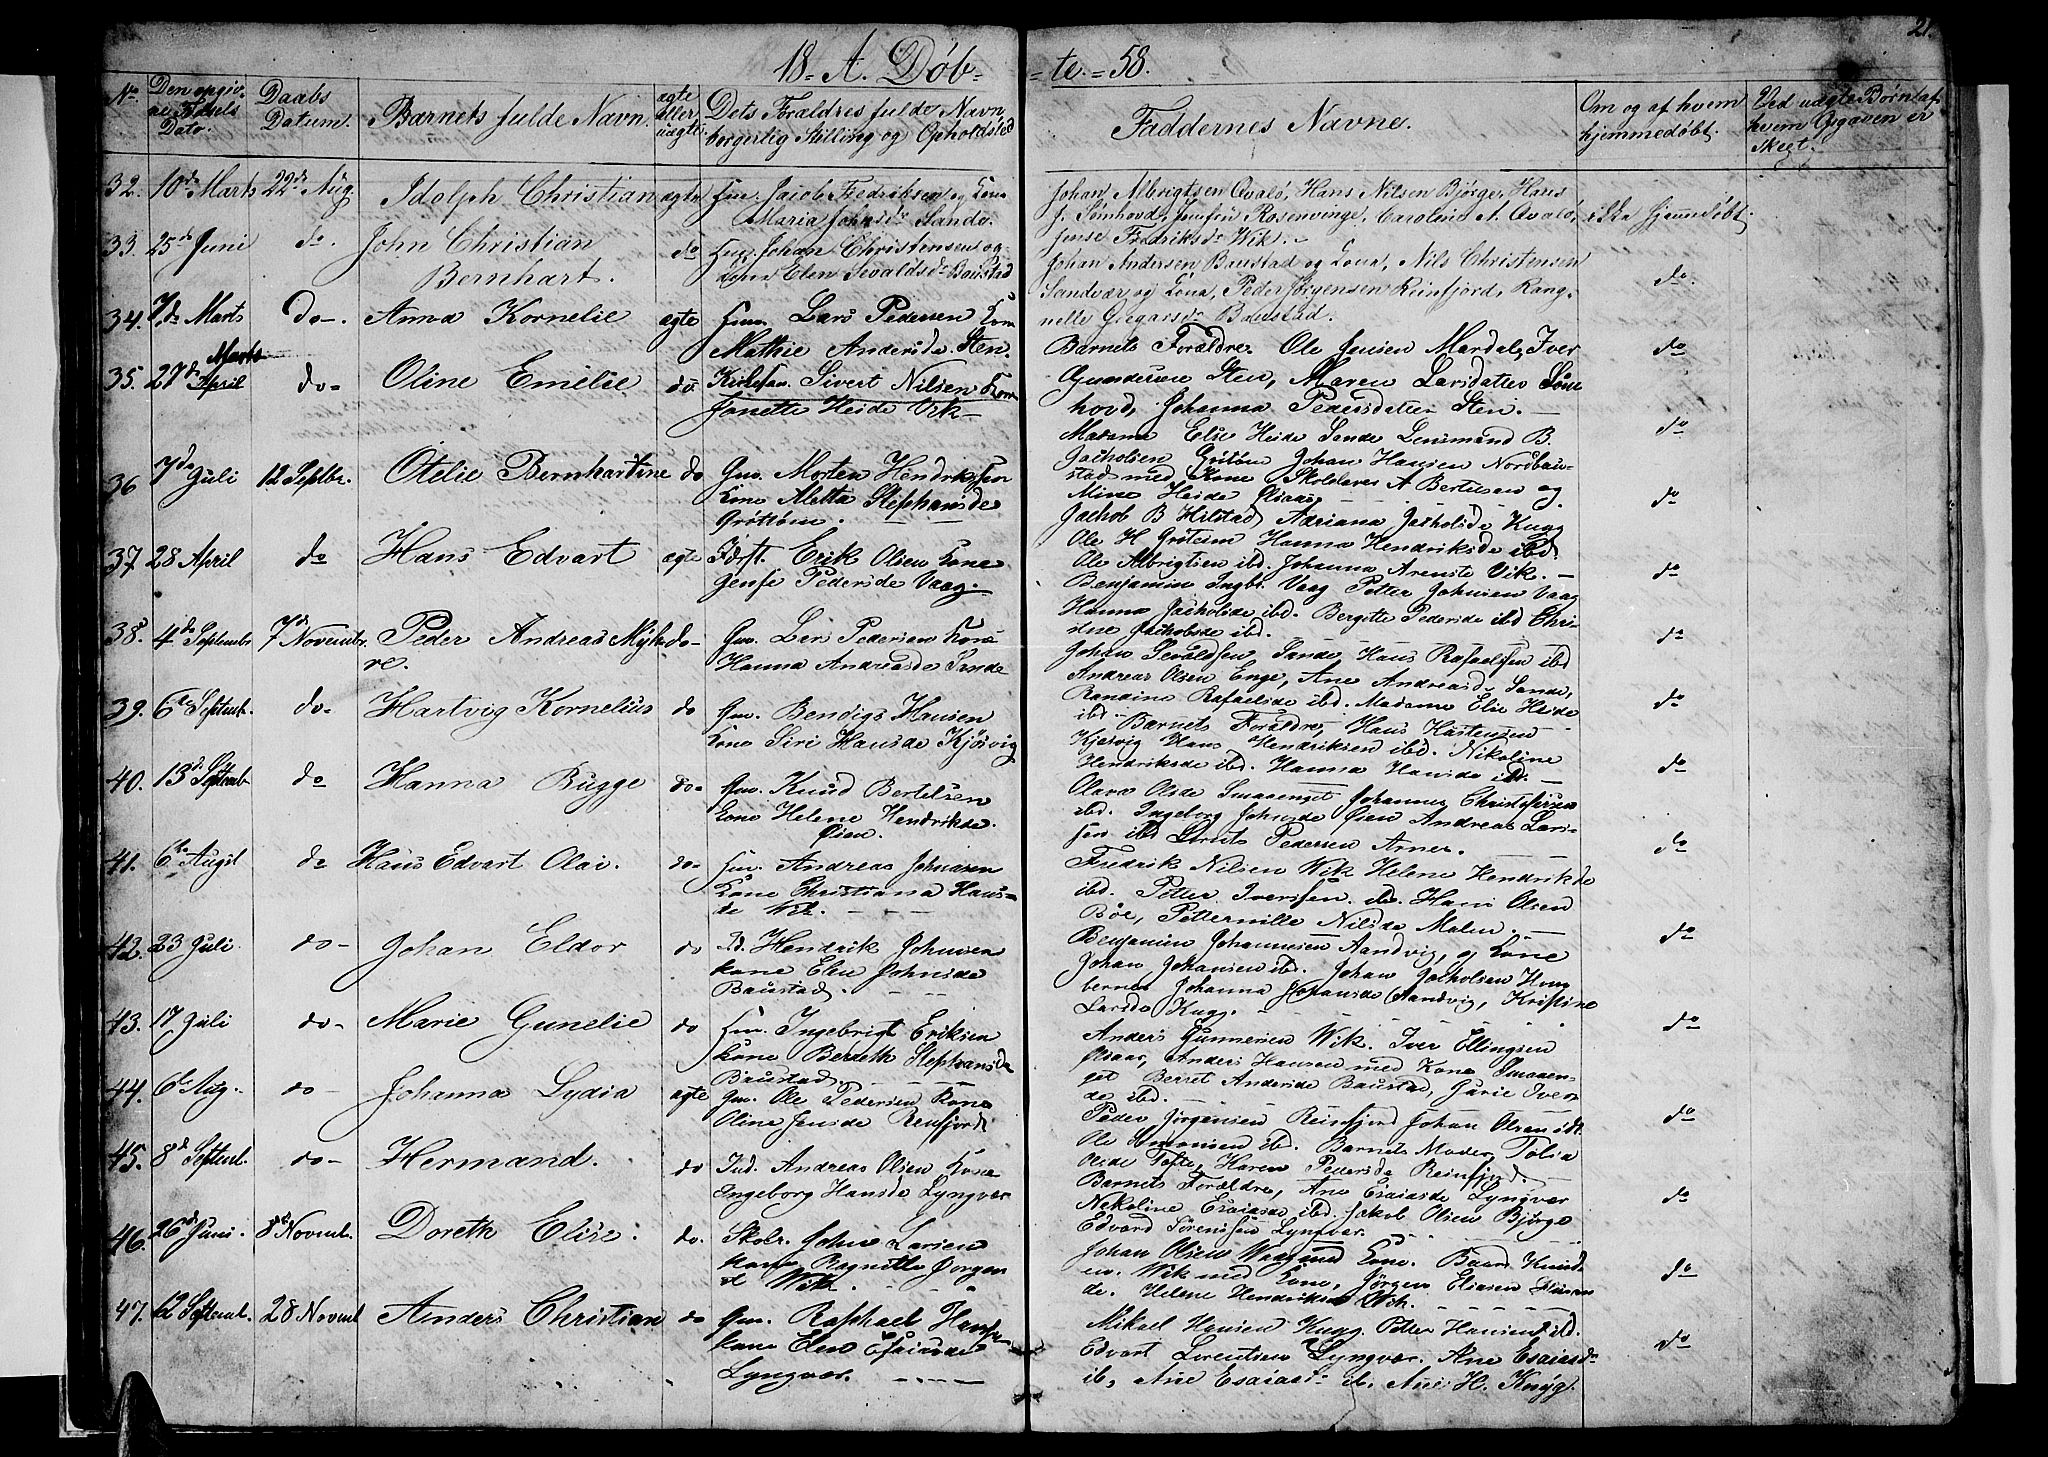 18 = A. Døb = = te. = 58.
21.
No.
Den opgiv-
ne Fødsels
Dato.
Daabs
Datum.
Barnets fulde Navn.
ægte
eller
uægte.
Dets Forældres fulde Navn,
borgerlig Stilling og Opholdsted
Faddernes Navne.
Om og af hvem
hjemmedøbt.
Ved uægte Børn: af
hvem Opgaven er
skeet.
32. 10de Marts 22de Aug. Idolph Christian ægte Huus. Jacob Fredriksen og Kone
Maria Johnsdr Sande.
Johan Albrigtsen Qvalø, Hans Nilsen Bjørge, Hans
J. Sømhovd, Rosenvinge, Caroline A. Qvalø,
Jense Fredriksdr Wik.
ikke hjemmedøbt.
33. 25de Juni do. John Christian
Bernhart.
do Huus. Johan Christensen og
Kone Elen Sevaldsdr Baustad
Johan Andersen Baustad og Kona, Nils Christensen
Sandvær og Kona, Peder Jørgensen Reinfjord, Rang-
nelle Gregarsdr Baustad.
do.
34. 7de Marts do-. Anna Kornelie ægte Huus. Lars Pedersen Kone
Mathie Andersde Sten.
Barnets Forældre. Ole Jensen Mardal, Iver
Gundersen Sten, Maren Larsdatter Søm
hovd, Johanna Pedersdatter Sten. —
do
35. 27de Marts
April
do- Oline Emelie do Sivert Nilsen Kone
Janette Heide Vik-
Madame Elie Heide Sande Lensmand B.
Jacholsen Grøtøm Johan Hansen Nordbau-
stad med Kone Skolelærer A Bertesen og
Mine Heide Olsaas
do
36 7de Juli 12 Septbr. Otelie Bernhartine do Gm. Morten Hendriksen
Kone Aletta Stephansde
Grøttøm. — —
Jachob B Hilstad, Adriana Jacholsde Kugg
Ole H Grøtøm Hanna Hendriksde ibd.
Ole Albrigtsen ibd. Johanna Arenste Vik. —
do
37. 28 April do Hans Edvart ægte Erik Olsen Kone
Jense Pedersde Vaag.
Benjamin Ingbr. Vaag Petter Johnsen Vaag
Hanna Jacholsde ibd. Bergitte Pedersde ibd Chri-
stine Jachobsde ibd.
do
38. 4de Septembr 7de Novembr. Peder Andreas Myh-
re.
do- Gm. Pedersen Kone
Hanna Andreasde Sande
Johan Sevaldsen Sande Hans Rafaelsen ibd
Andreas Olsen Enge, Ane Andreasdr Sande,
Randine Rafaelsde ibd. Madame Elie Heide
ibd.
do
39. 6te Septemb. do- Hartvig Kornelius do Gm. Bendigs Hansen
Kone Siri Hansde Kjøsvig
Barnets Forældre, Hans Hartensen
Kjøsvig Hans Hendriksen ibd. Nikoline
Hendriksde ibd. Hanna Hansde ibd. —
do
40. 13de Septemb do Hanna Bugge do- Gm. Knud Bertelsen
Kone Helene Hendriksde.
Øien.
Olava Olsde Smaaenget Johannes Christophersen
ibd. Ingeborg Johnsde Øien Andreas Lari-
sen ibd Lorents Pedersen Arnes.
do
41. 6te August do Hans Edvart Olai. do- Huus. Andreas Johnsen
Kone Christiana Hans-
de Wik. — — —
Fredrik Nilsen Wik Helene Hendriksde
ibd. Petter Iversen ibd. Hans Olsen
Bøe, Petternille Nilsde Malen. —
do
42. 23 Juli do- Johan Eldor do Hendrik Johnsen
kone Elen Johnsde
Baustad.
Benjamin Johannesen Aandvig, og Kone
Johan Johansen ibd. Johan Jacholsen Hug
bernes Johanna Johansde Aandvig, Kristine
Larsde Kugg.
do
43. 17 Juli do- Marie Gunelie do Huus. Ingebrigt Eriksen
kone Bereth Stephansde
Baustad.
Anders Gunnersen Wik. Iver Ellingsen
Olsaas, Anders Hansen med Kone Smaaen-
get Berret Andersde Baustad, Gurie Ivers
de ibd.
do
44. 6te Aug. do- Johanna Lydia ægte Gm. Ole Pedersen Kone
Oline Jensde Reinfjord.
Peder Jørgensen Reinfjord Johan Olsen ibd.
Ole Simonsen ibd. Barnets Moder, Tolia
Olsde Tofte, Karen Pedersde Reinfjord.
do
45. 8de Septemb. do- Hermand. do Ind. Andreas Olsen Kone
Ingeborg Hansde Lyngvær
Barnets Forældre, Ane Esaiasde Lyngvær
Nekoline Esaiasde ibd. Jakob Olsen Bjørge
Edvard Sørenssen Lyngvær.
do
46. 26de Juni. 8de Novemb. Doreth Elise. do. Skolr. John Larsen
kone Ragnilla Jørgens
de Wik.
Johan Olsen Waag med Kone. Baard Knud-
sen. Wik med Kone, Jørgen Eliasen
Helene Hendriksde Wik.
do
47. 12 Septemb. 28 Novemb Anders Christian do Gm. Raphael Hansen
kone Elen Esaiasde
Lyngvær. — — —
Mikael Hansen Kugg. Petter Hansen ibd.
Edvart Lorentsen Lyngvær. Ane Esaiasdr
ib, Ane Esaiasdr ib. Ane H. Knyg.
do